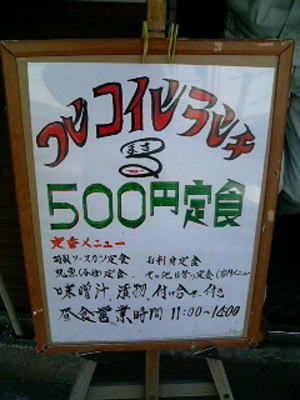 ワンコインランチ
まさる
500円定食
定番メニュー
特製ソースカツ定食 お刺身定食
焼魚(各種)定食 その他日替り定食(店内メニュー
味噌汁、漬物、付け合せ、付き
昼食営業時間 11:00~14:00